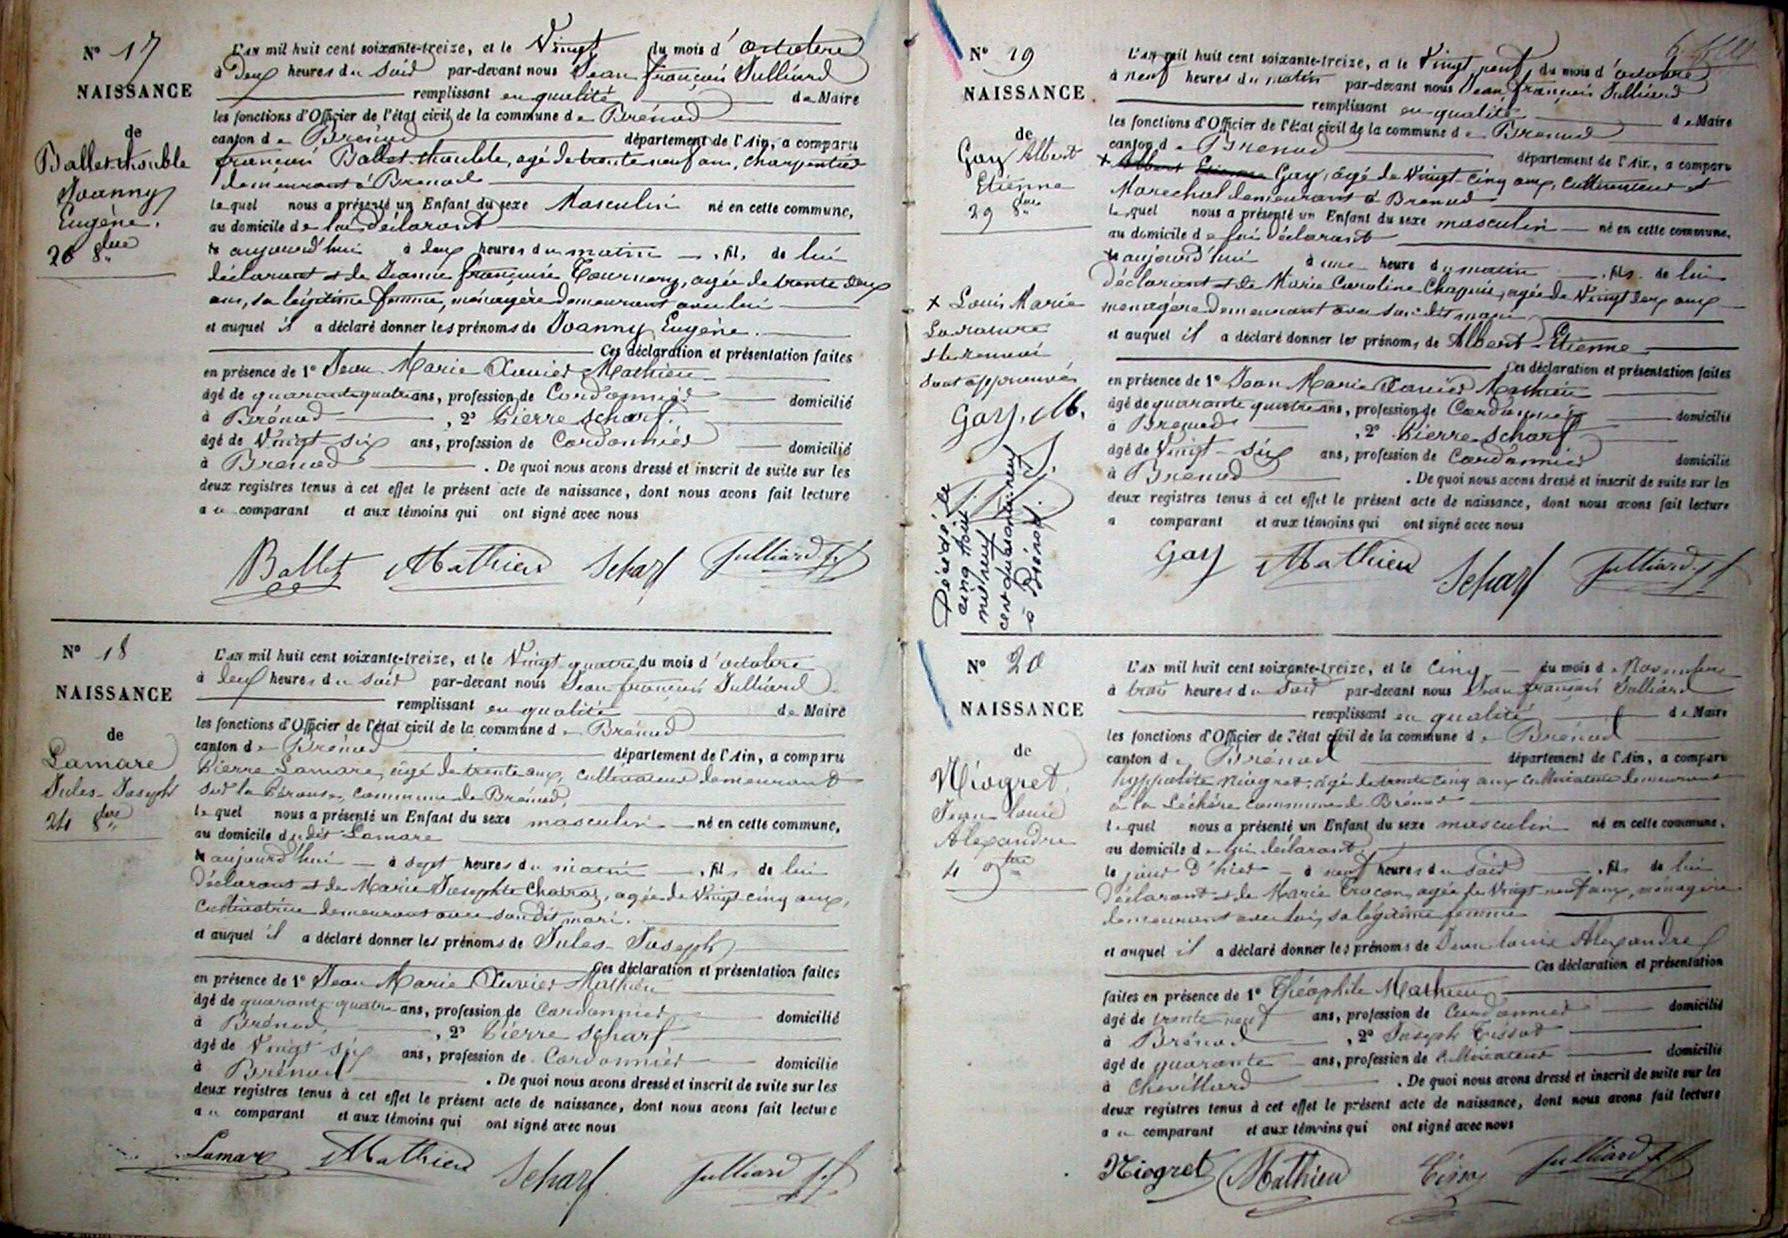 Nº 17
NAISSANCE
de
Ballet-thouble
Joanny
Eugène.
20 8bre
L'AN mil huit cent soixante-treize, et le Vingt du mois d'octobre
à deux heures du soir par-devant nous Jean françois Julliard
remplissant en qualité de Maire
les fonctions d'Officier de l'état civil de la commune de Brénod
canton de Brénod département de l'Ain, a comparu
françois Ballet-thouble, agé de trente neuf ans, charpentier
demeurant à Brénod
lequel nous a présenté un Enfant du sexe Masculin né en cette commune,
au domicile de lui déclarant
aujourd'hui à deux heures du matin, fils de lui
déclarant et de Jeanne françoise Tournery, agée de trente deux
ans, sa légitime femme, ménagère demeurant avec lui
et auquel il a déclaré donner les prénoms de Joanny Eugène.
Ces déclaration et présentation faites
en présence de 1º Jean Marie Xavier Mathieu
âgé de quarante quatre ans, profession de Cordonnier domicilié
à Brénod, 2º Pierre Scharf.
âgé de Vingt-six ans, profession de Cordonnier domicilié
à Brénod. De quoi nous avons dressé et inscrit de suite sur les
deux registres tenus à cet effet le présent acte de naissance, dont nous avons fait lecture
au comparant et aux témoins qui ont signé avec nous
Ballet Mathieu Scharf Julliard J.f.
Nº 18
NAISSANCE
de
Lamare
Jules-Joseph
24 8bre
L'AN mil huit cent soixante-treize, et le Vingt quatre du mois d'octobre
à deux heures du soir par-devant nous Jean françois Julliard
remplissant en qualité de Maire
les fonctions d'Officier de l'état civil de la commune de Brénod
canton de Brénod département de l'Ain, a comparu
Pierre Lamare, âgé de trente ans, cultivateur demeurant
sur la commune de Brénod,
lequel nous a présenté un Enfant du sexe masculin né en cette commune,
au domicile dudit Lamare
aujourd'hui à sept heures du matin, fils de lui
déclarant et de Marie Josephte agée de Vingt cinq ans,
cultivatrice demeurant avec son dit mari.
et auquel il a déclaré donner les prénoms de Jules-Joseph
Ces déclaration et présentation faites
en présence de 1º Jean Marie Xavier Mathieu
âgé de quarante quatre ans, profession de Cordonnier domicilié
à Brénod, 2º Pierre Scharf
âgé de Vingt six ans, profession de Cordonnier domicilié
à Brénod. De quoi nous avons dressé et inscrit de suite sur les
deux registres tenus à cet effet le présent acte de naissance, dont nous avons fait lecture
au comparant et aux témoins qui ont signé avec nous
Lamare Mathieu Scharf Julliard J.f.
Nº 19
NAISSANCE
de
Gay Albert
Etienne
29 8bre
+ Louis Marie
La rature
et le renvoi
sont approuvés
Gay. M.
J.
Décédé le
cinq Août
mil neuf
cent quarante neuf
à Brénod.
L'AN mil huit cent soixante-treize, et le Vingt neuf du mois d'octobre
à neuf heures du matin par-devant nous Jean françois Julliard
remplissant en qualité de Maire
les fonctions d'Officier de l'état civil de la commune de Brénod
canton de Brénod département de l'Ain, a comparu
+ Albert Etienne Gay, âgé de Vingt-cinq ans, cultivateur et
Maréchal demeurant à Brénod
lequel nous a présenté un Enfant du sexe masculin né en cette commune,
au domicile de lui déclarant
aujourd'hui à une heure du matin, fils de lui
déclarant et de Marie Caroline Chapuis, agée de Vingt deux ans
ménagère demeurant avec son dit mari
et auquel il a déclaré donner les prénoms de Albert-Etienne
Ces déclaration et présentation faites
en présence de 1º Jean Marie Xavier Mathieu
âgé de quarante quatre ans, profession de Cordonnier domicilié
à Brénod, 2º Pierre Scharf
âgé de Vingt-six ans, profession de Cordonnier domicilié
à Brénod. De quoi nous avons dressé et inscrit de suite sur les
deux registres tenus à cet effet le présent acte de naissance, dont nous avons fait lecture
a comparant et aux témoins qui ont signé avec nous
Gay Mathieu Scharf Julliard J.f.
Nº 20
NAISSANCE
de
Niogret
Jean louis
Alexandre
4 9bre
L'AN mil huit cent soixante-treize, et le cinq du mois de Novembre
à trois heures du soir par-devant nous Jean françois Julliard
remplissant en qualité de Maire
les fonctions d'Officier de l'état civil de la commune de Brénod
canton de Brénod département de l'Ain, a comparu
hyppolite Niogret, âgé de trente cinq ans cultivateur demeurant
à la Léchère commune de Brénod
lequel nous a présenté un Enfant du sexe masculin né en cette commune,
au domicile de lui déclarant
le jour d'hier à neuf heures du soir, fils de lui
déclarant et de Marie Trocon, agée de Vingt neuf ans, ménagère
demeurant avec lui, sa légitime femme
et auquel il a déclaré donner les prénoms de Jean louis Alexandre
Ces déclaration et présentation
faites en présence de 1º Théophile Mathieu
âgé de trente neuf ans, profession de Cordonnier domicilié
à Brénod, 2º Joseph Tissot
âgé de quarante ans, profession de Cultivateur domicilié
à Chevillard. De quoi nous avons dressé et inscrit de suite sur les
deux registres tenus à cet effet le présent acte de naissance, dont nous avons fait lecture
au comparant et aux témoins qui ont signé avec nous
Niogret Mathieu Tissot Julliard J.f.